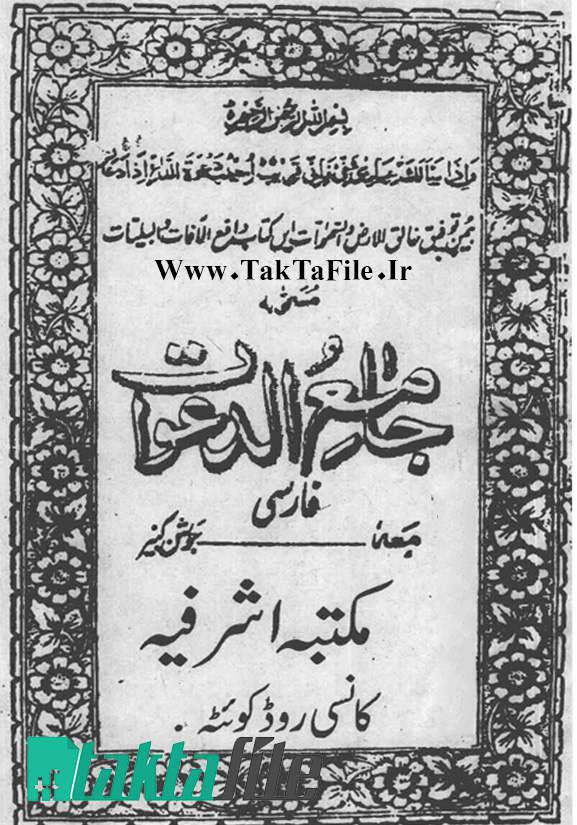 بسم الله الرحمن الرحیم
وَاِذَا سَاَلَكَ عِبَادِی عَنِّی فَاِنِّی قَرِیْبٌ اُجِیْبُ دَعْوَةَ الدَّاعِ اِذَا دَعَانِ
توفیق خالق الارض والسموات این کتاب دافع الآفات والبلیات
Www.TakTaFile.Ir
مسمّٰی به
جامع الدعوات
فارسی
معہ جوشن کبیر
مکتبه اشرفیه
کانسی روڈ کوئٹہ .
taktafile